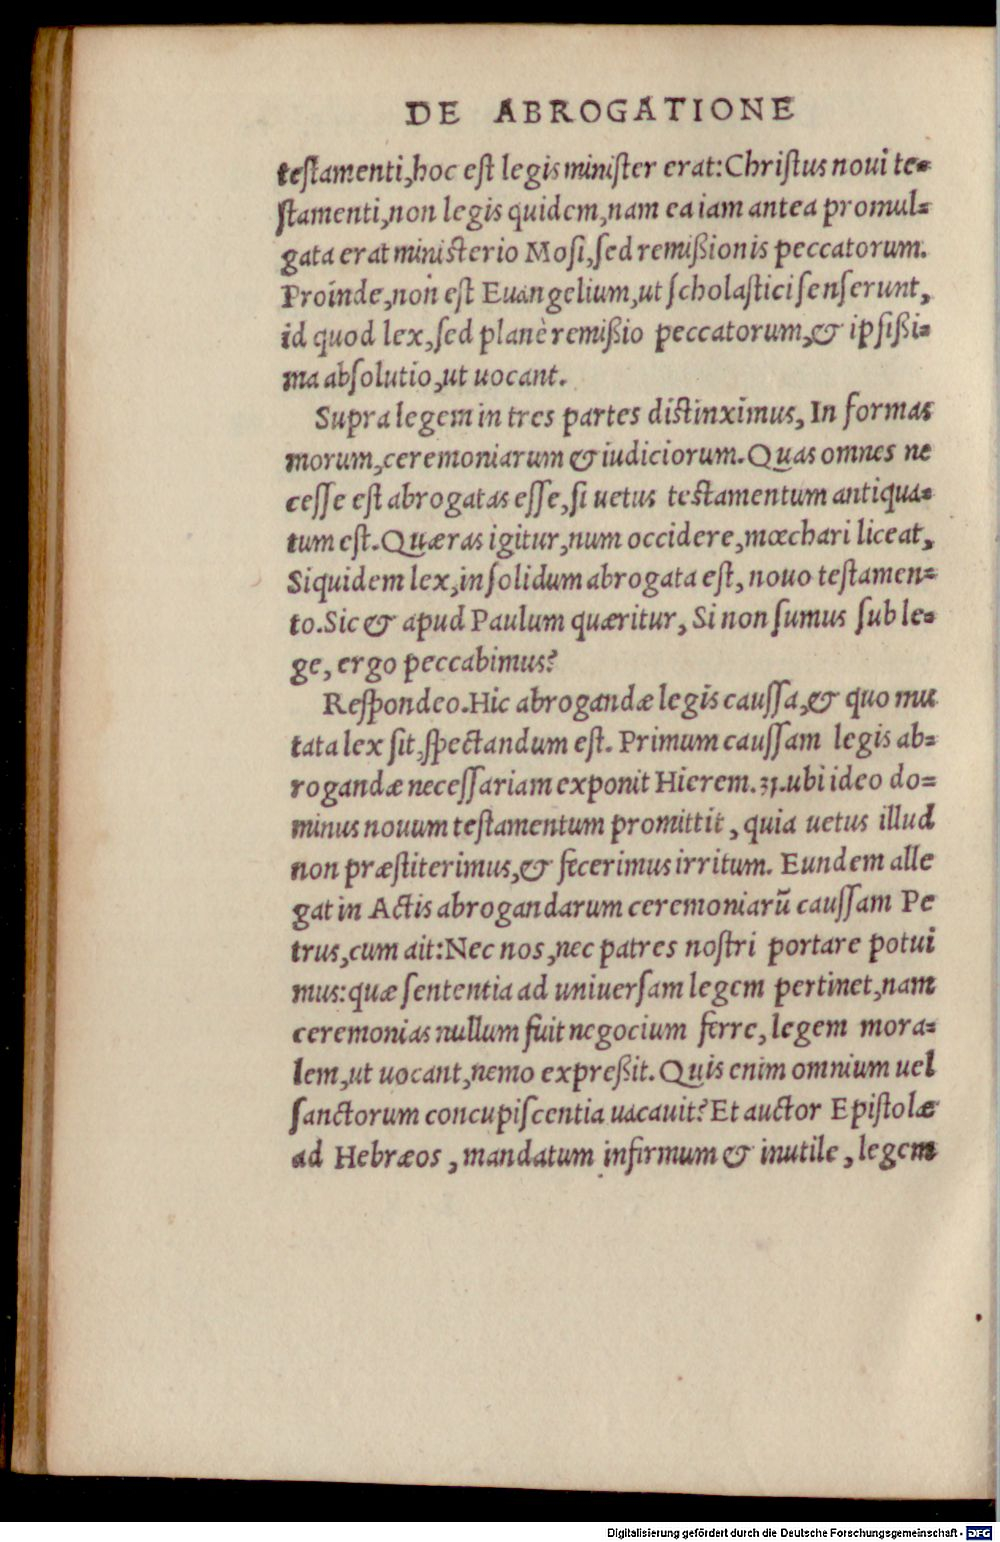 DE ABROGATIONE
testamenti, hoc est legis minister erat: Christus noui te-
stamenti, non legis quidem, nam ea iam antea promul-
gata erat ministerio Mosi, sed remißionis peccatorum.
Proinde, non est Euangelium, ut scholastici senserunt,
id quod lex, sed planè remißio peccatorum, & ipsißi-
ma absolutio, ut uocant.
Supra legem in tres partes distinximus, In formas
morum, ceremoniarum & iudiciorum. Quas omnes ne
cesse est abrogatas esse, si uetus testamentum antiqua-
tum est. Quæras igitur, num occidere, mœchari liceat,
Siquidem lex, in solidum abrogata est, nouo testamen-
to. Sic & apud Paulum quæritur, Si non sumus sub le-
ge, ergo peccabimus?
Respondeo. Hic abrogandæ legis caussa, & quo mu
tata lex sit, spectandum est. Primum caussam legis ab-
rogandæ necessariam exponit Hierem. 31. ubi ideo do-
minus nouum testamentum promittit, quia uetus illud
non præstiterimus, & fecerimus irritum. Eundem alle
gat in Actis abrogandarum ceremoniarũ caussam Pe
trus, cum ait: Nec nos, nec patres nostri portare potui
mus: quæ sententia ad uniuersam legem pertinet, nam
ceremonias nullum fuit negocium ferre, legem mora-
lem, ut uocant, nemo expreßit. Quis enim omnium uel
sanctorum concupiscentia uacauit? Et auctor Epistolæ
ad Hebræos, mandatum infirmum & inutile, legem
Digitalisierung gefördert durch die Deutsche Forschungsgemeinschaft - DFG